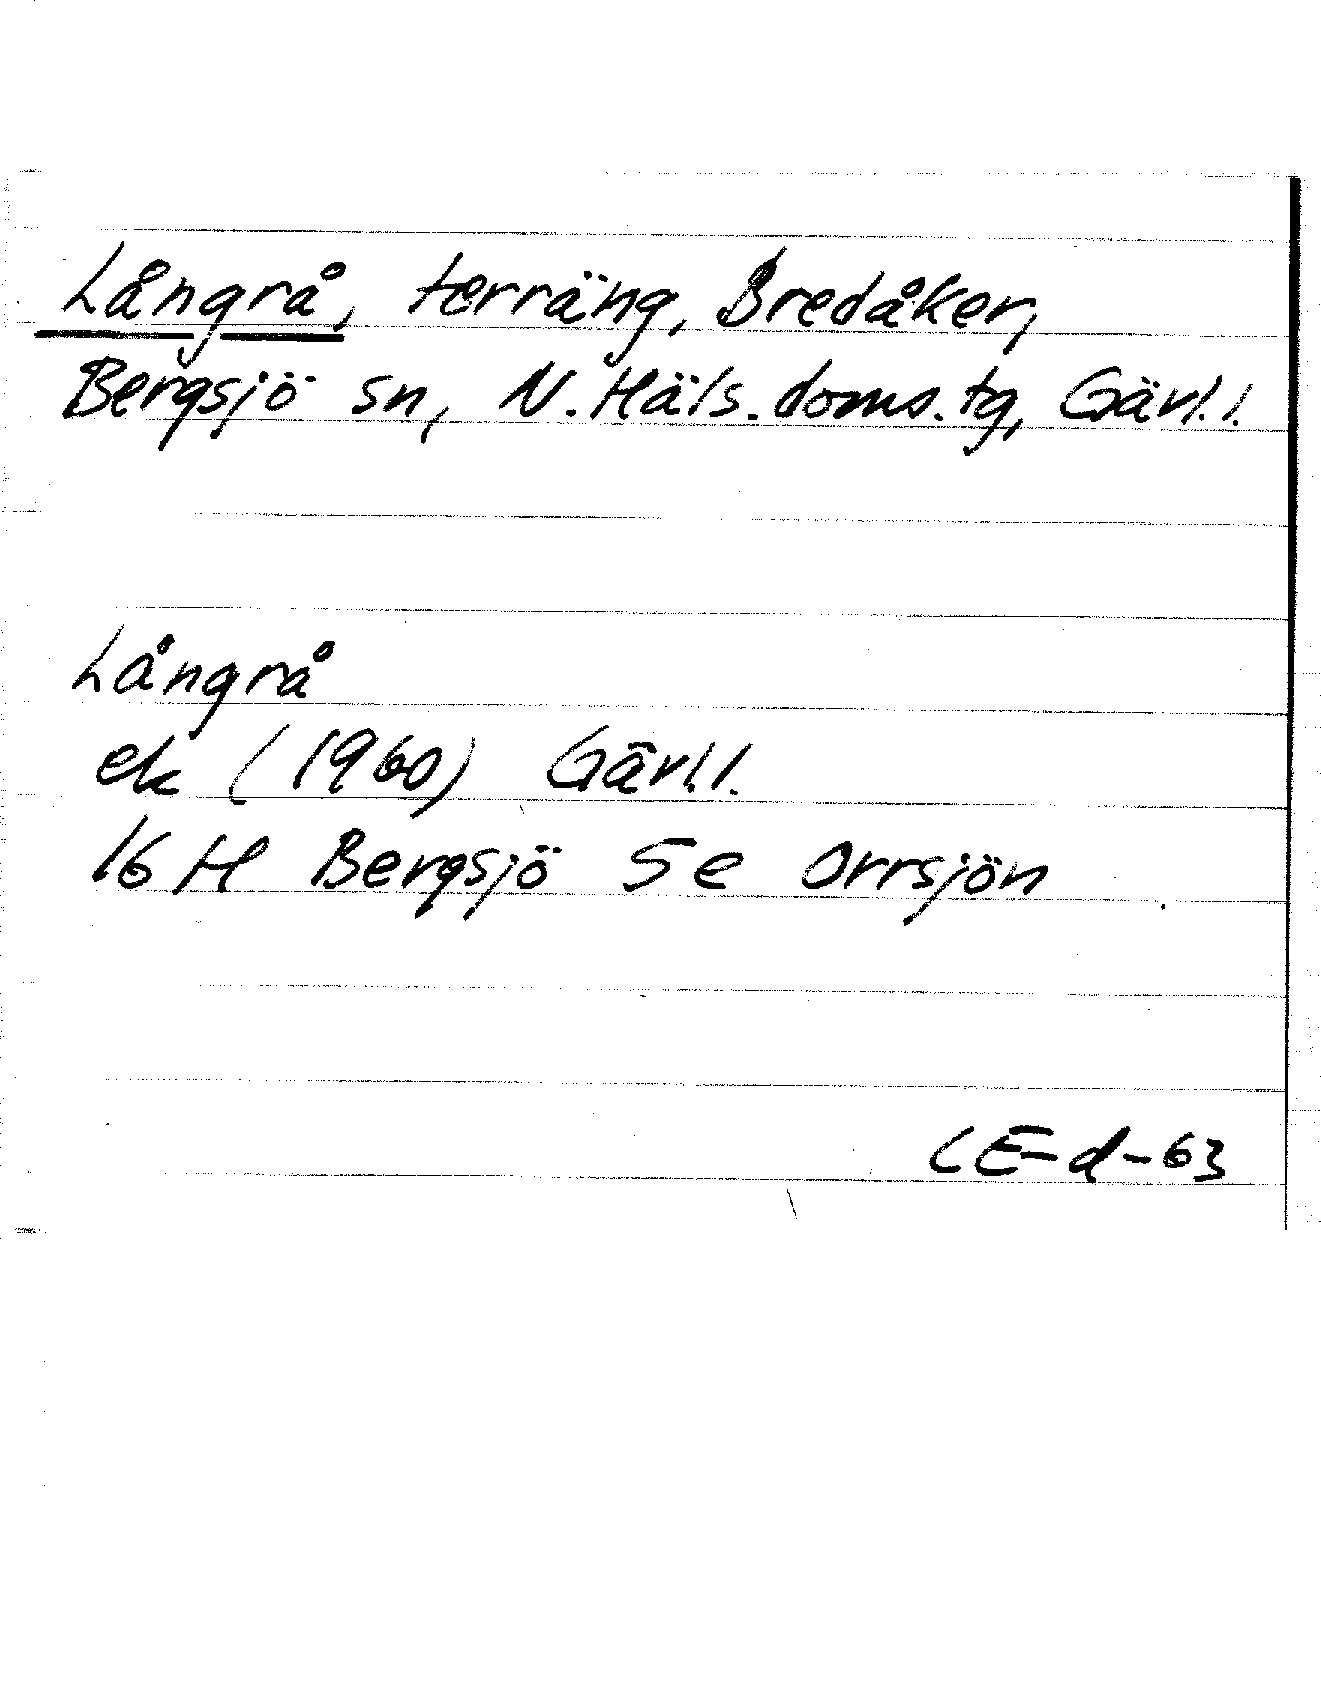 Långrå, terräng, Bredåker,
Bergsjö sn, N. Häls. doms. tg, Gävl. l.
Långrå
ek (1960) Gävl. l.
16 H Bergsjö 5 e Orrsjön
CE-d-63